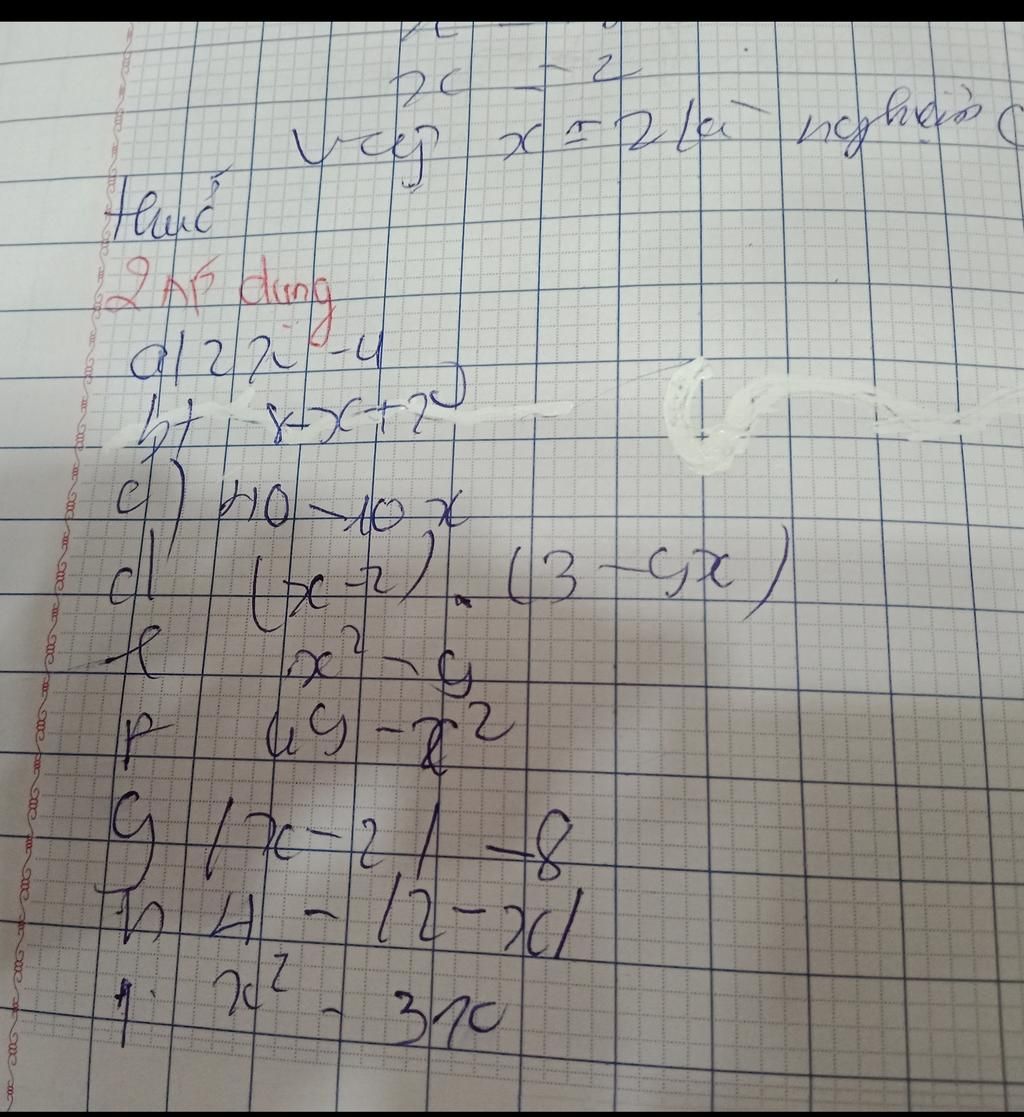 x = 2
Vậy x = 2 là nghiệm
thức
2 Áp dụng
a/ 2x - 4
c) 40 - 10x
d/ (x - 2) . (3 - 9x)
e x² - 9
f 49 - x²
g |x - 2| - 8
h 4 - |2 - x|
i. x² - 3x